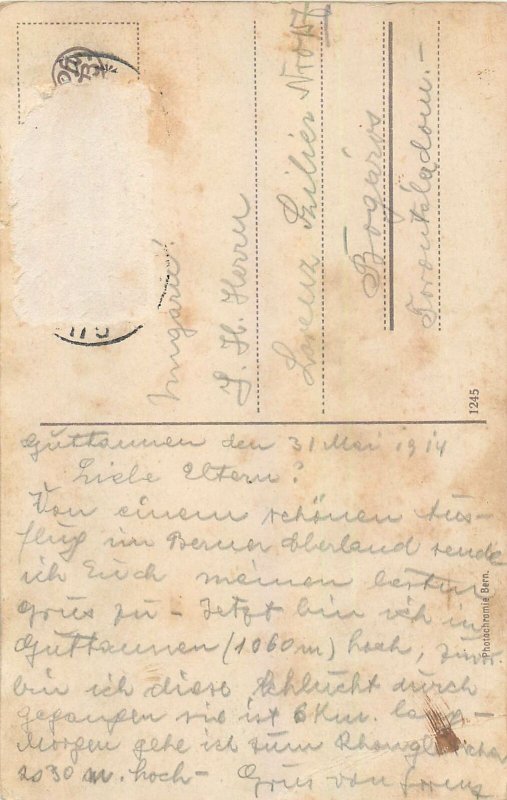 Ungarn!
S. H. Herrn
Lorenz No 17
Bogáros
1245
Photochromie Bern.
Guttannen den 31 Mai 1914
Liebe Eltern!
Von einem schönen Aus-
flug im Berner Oberland sende
ich Euch meinen besten
Grus zu - Jetzt bin ich in
Guttannen (1060 m) hoch,
bin ich diese Schlucht durch
gegangen sie ist 6 Km. lang -
Morgen gehe ich zum Rhongletscher
m. hoch - Grus von